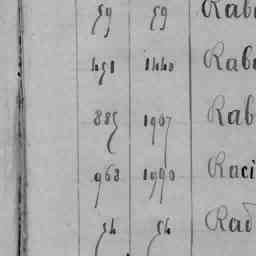 59 59 Rab
451 1440 Rab
885 1907 Rab
968 1990 Raci
54 54 Rad